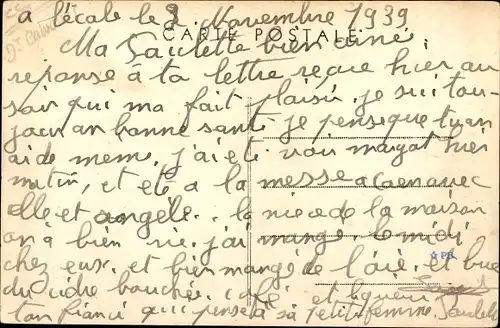 a l'écale le 2 Novembre 1939
CARTE POSTALE
Ma Paulette bien aimé,
réponse à ta lettre reçue hier au
soir qui ma fait plaisir. je sui tou-
jour an bonne santé je panse que tu an
aide meme, j'ai été voir margot hier
matin, et été a la messe a Caen avec
elle et angèle.. la nièce de la maison
on à bien rie, j'ai mangé le midi
chez eux. et bien mangé de l'oie. et bue
du cidre bouchée. café et liqueur
ton fiancé qui panse à sa petite femme. Paulette